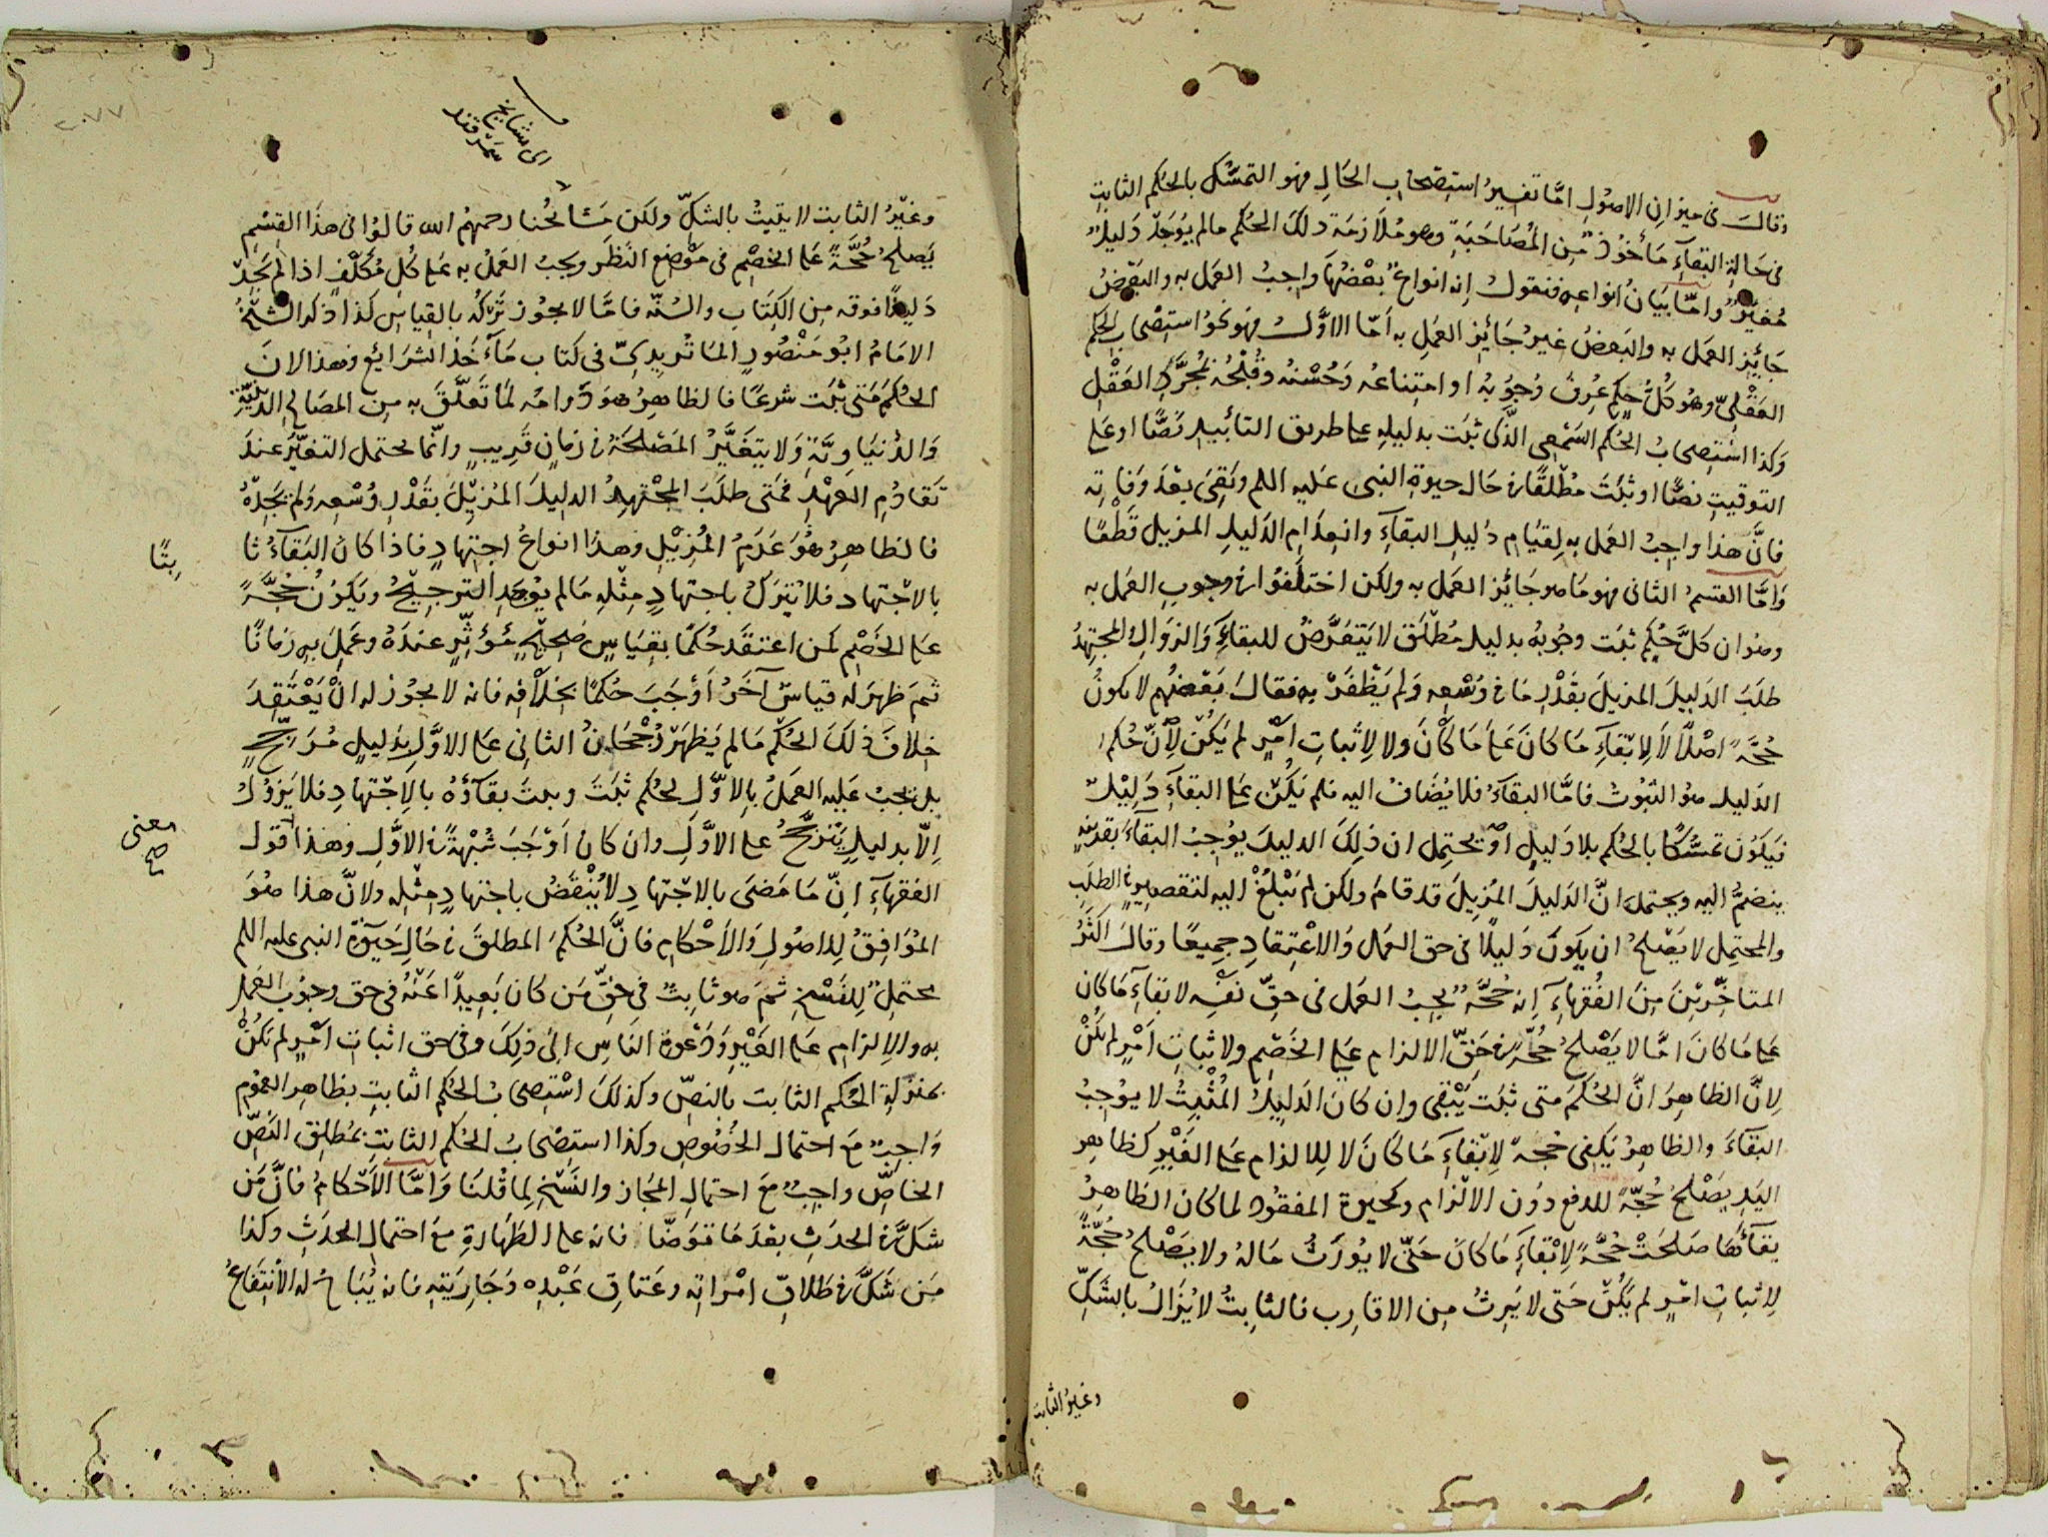 وقال في ميزان الاصول امّا تفسيرُ استصحاب الحال فهو التمسّك بالحُكم الثابت
في حالة البقآءِ مأخوذٌ من المُصَاحَبَةِ وهو مُلازمَة ذلك الحُكم مالم يُوجَدْ دَليلٌ
مُغيّرٌ وامّا بَيَانُ انواعِه فنقول انه انواعٌ بعْضُهَا واجبُ العمَل به والبَعْضُ
جَايِز العمَل به والبَعضُ غيرُ جَايِز العمَلِ به أمّا الاوَّلُ فهو نحوُ استصْحابِ الحكم
العَقْلِيّ وهُو كُلُّ حكمٍ عُرِفَ وُجوُبُهُ او امتِناعُه وَحُسْنُه وقُبْحُه بمُجرَّدِ العَقْلِ
وَكذا اسْتصِحابُ الحُكم السَّمْعِي الذَّي ثبَت بدليلِهِ على طريق التابيد نَصًّا او على
التوقيتِ نصًّا او ثبَتَ مُطْلقًا في حَال حيوةِ النبي عَليه اللم وبَقِيَ بعْدَ وَفاته
فانَّ هذا واجبُ العمَل به لِقيَام دَليلِ البقآءِ وانعِدَامِ الدَليلِ المزيل قَطْعًا
وَامَّا القِسمُ الثانى فهو مَا هو جَايَز العمَل به ولكن اختلَفوُا في وجوبِ العمَل به
وهو ان كلَّ حُكمٍ ثبَت وجُوبُه بدليلٍ مُطْلَقٍ لا يَتَعَرَّضُ للبقآءِ وَالزوَالِ المجتهِدُ
طلَبَ الدَليلَ المزيلَ بقَدْرِ مَا في وُسْعِه وَلم يَظْفَرْ به فقالَ بَعْضهُم لا يكونُ
حُجَّةً اصْلًا لا لِابْقآءِ مَا كانَ عَلىَ مَا كَانَ ولا لِاثباتِ امْرٍ لم يَكُنْ لِأنَّ حُكم
الدَليلِ هوُ الثبُوتُ فامَّا البقآءُ فلا يُضَافُ اليه فلم يَكُنْ على البقآءِ دَلِيْلٌ
فيَكوُن تمسُّكًا بالحُكم بلا دَليلٍ او يحتمِل ان ذلك الدليلَ يوُجِبُ البقآءَ بقَرينَةٍ
ينضمُّ اليه ويحتمل انَّ الدَليلَ المُزيلَ قد قامَ ولكن لم يَبْلُغْ اليه لتقصِيرهِ في الطلَبِ
والمحتمِل لا يَصْلحُ ان يكونَ دَليلًا في حق العمَل وَالاعْتِقادِ جميعًا وقالَ اكثرُ
المتاخّريْنَ مِنَ الفُقهآءِ انه حُجَّةٌ يجبُ العمَل في حقّ نفْسِه لابقآءِ مَا كان
عَلى مَا كانَ امّا لا يَصْلحُ حُجّةً في حَقّ الالزام على الخَصْمِ ولاثباتِ امْرٍ لم يكُنْ
لِانَّ الظاهِرَ انَّ الحُكمَ متى ثبَت يَبْقى وان كانَ الدَليلُ المُثْبِتُ لا يوُجِبُ
البقآءَ والظاهِرُ يَكفِى حُجّةً لِابْقآءِ مَا كَانَ لا لِلالزام عَلى الغَيْرِ كظاهِر
اليَدِ يَصْلحُ حُجّةً للدفع دوُن الالْزام وكحيوة المفقوُد لما كان الظَاهِرُ
بقآءُهَا صَلحَتْ حُجّةً لِابْقآءِ مَا كانَ حَتّى لا يوُرَثُ مَالهُ ولا يَصْلحُ حُجّةً
لِاثباتِ امْرٍ لم يَكُنْ حَتى لا يَرِثُ مِن الاقارِب فالثابتُ لا يُزَالُ بالشَكّ
وغيرُ الثابت
الى مشايخ
سَمرقند
وغيْرُ الثابت لا يثبتُ بالشكّ ولكن مَشَائخُنا رحمهُم الله قالوُا في هذَا القِسْم
يَصلحُ حُجَّةً عَلى الخصْم في مَوْضِع النَظر ويجبُ العَمَلُ به عَلى كُلّ مُكلّفٍ اذا لم يَجِدْ
دَليلًا فوقه مِن الكِتَابِ والسُنّة فامَّا لا يجوُز تَرْكُه بالقِياسِ كذا ذكر الشيْخُ
الامَامُ ابُو مَنْصُورٍ المَاتُريدِىّ في كتاب مَآخذ الشرَايع وهذا لانَ
الحُكمَ مَتى ثبَت شرعًا فالظاهِرُ هوَ دَوامُه لمَا تعَلَّقَ به مِنَ المصَالح الدّينيَّةِ
وَالدُنيَاوِيَّةِ وَلا يتغَيَّرُ المَصْلحَةُ في زمَانٍ قَريبٍ وانّما يحتمل التغيّرَ عندَ
تقَادُمِ العَهْدِ فمَتى طلَبَ المجْتهِدُ الدليلَ المُزيْلَ بقَدْرِ وُسْعِه وَلم يَجِدْهُ
فالظاهِرُ هُوَ عَدَمُ المُزيْلِ وهذا انواعُ اجتِهادٍ فاذا كان البَقآءُ ثا
بِتًا
بالاجْتهَاد فلا يُترَكُ باجتهادٍ مِثْلِهِ مالم يوُجَدِ التَرجِيْحُ ويَكوُنُ حُجَّةً
عَلى الخَصْم كمَن اعتقَد حُكمًا بقِيَاسٍ صَحِيْحٍ مُؤثِّرٍ عندَهُ وعَمِلَ بهِ زمَانًا
ثمَ ظهرَ له قياسٌ آخَرُ اَوْجَبَ حُكمًا بخِلاْفه فانه لا يجوُز له انْ يَعْتَقِدَ
خِلافَ ذلكَ الحُكم مَالم يَظهَرْ رُجْحَانُ الثانى عَلى الاوَّلِ بدَليلٍ مُرَجِّحٍ
بل يجبُ عَليه العَمَلُ بالاوَّلِ لحُكمٍ ثبَتَ وبدَتَ بقآؤُهُ بالاِجْتهَادِ فلا يَزوُلُ
الّا بدليلٍ يَترَجَّحُ على الاوَّلِ وان كان اَوْجَبَ شُبْهةً في الاوَّلِ وهذا قول
معنى
صح
الفقهآءِ انّ مَا مَضىَ بالاجْتهادِ لا يُنْقَضُ باجتهادٍ مِثْلِه ولانَّ هذا هوُ
المُوَافِقُ للاصُولِ وَالأَحْكامِ فانَّ الحُكمَ المطلقَ في حَالِ حَيوةِ النبى عليه اللم
محتمِلٌ لِلفَسْخِ ثمَ هو ثابتٌ في حَقّ مَن كان بَعِيدًا عَنْهُ في حق وجوُب العَمل
به والاِلزام عَلى الغَيْرِ وَدَعْوةِ النَاسِ الىَ ذلِكَ وفي حق اثباتِ امْرٍ لم يَكُنْ
بمنزلةِ الحُكم الثابت بالنصّ وكذلكَ اسْتصِحَابُ الحُكم الثابتِ بظاهِر العموُم
وَاجبٌ معَ احتمال الخُصُوصِ وكذا استصْحابُ الحكم الثابتِ بمُطلقِ النصّ
الخاصّ واجبٌ معَ احتمالِ المجَاز والنَسْخِ لِما قُلنَا وَامَّا الأَحْكامُ فانَّ مَنْ
شكَّ في الحدَثِ بعْدَ مَا توَضّا فانه على الطَهَارةِ معَ احتمالِ الحدَثِ وكذا
مَن شَكَّ في طَلاقِ امْراتِه وعَتاقِ عَبْدِه وَجَاريَتِه فانه يُبَاحُ له الاْنتفَاعُ